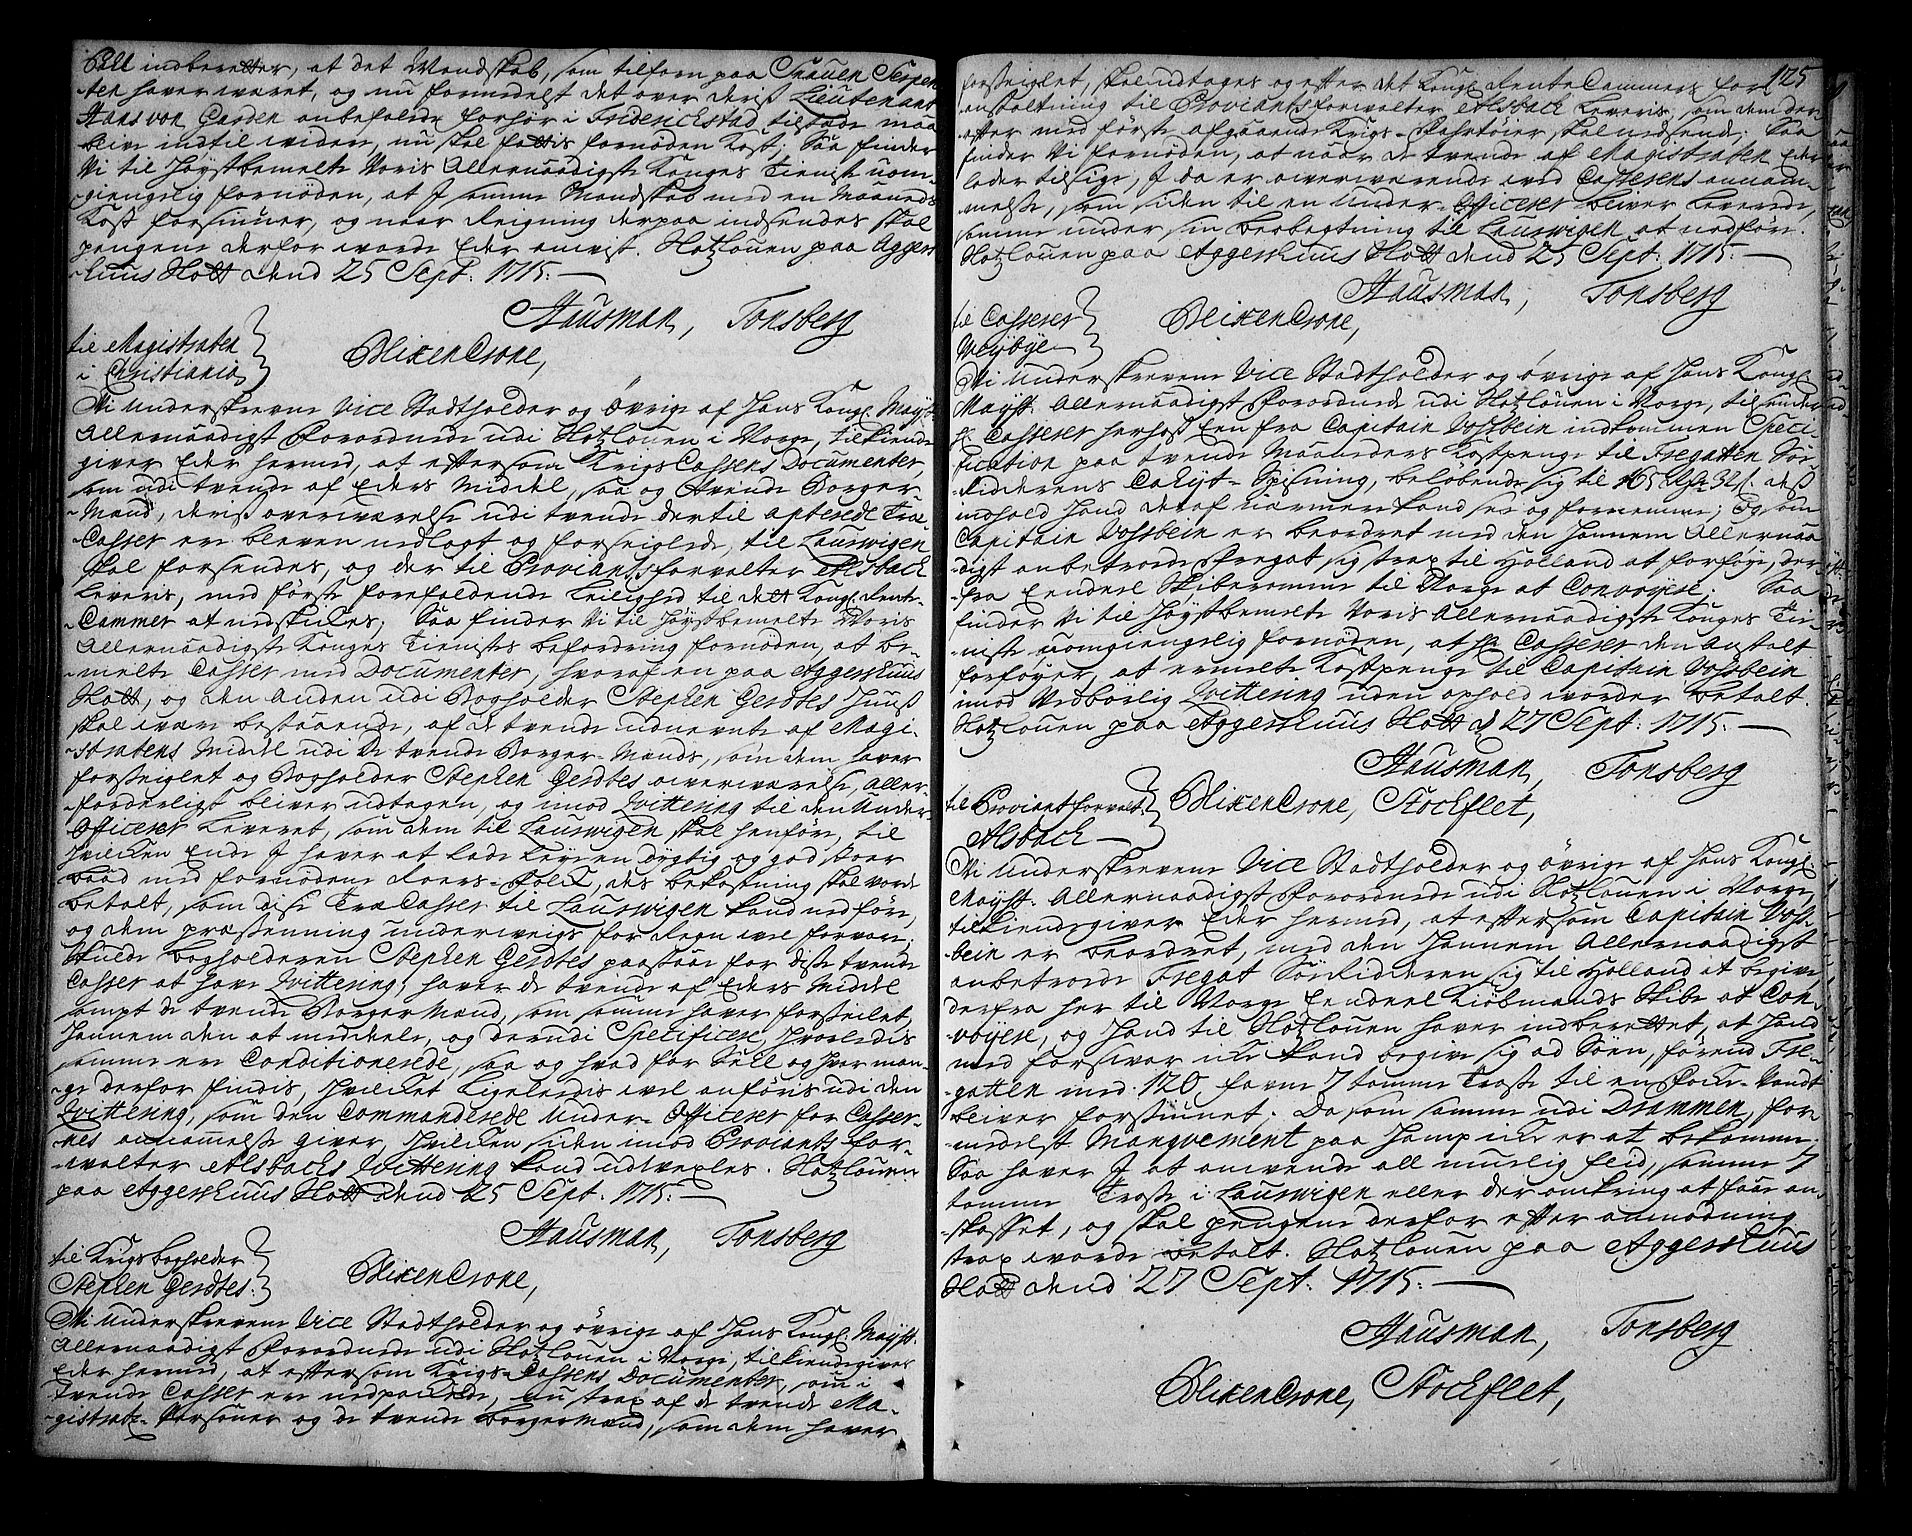 Pell indberetter, at det Mandskab, som tilforn paa Snauen Serpen-
-ten haver wæret, og nu formedelst det over deris Lieutenant
Hans von Garden anbefalede forhör i Friderichstad tilstede maa
blive indtil widere, nu skal fattis fornöden Kost; Saa finder
Vi til Höystbemelte Voris Allernaadigste Konges Tieniste uom-
-giengelig fornöden, at I samme Mandskab med en Maaneds
Kost forsiuner, og naar Reigning derpaa indsendes skal
pengene derfor worde Eder anvist. Slotzlouen paa Aggers-
-huus Slott dend 25 Sept: 1715.
Hausman, Tonsberg
til Magistraten
i Christiania
BlixenCrone,
Wi Underskrevene Vice Stadtholder og övrige af Hans Kongl. Mayst.
Allernaadigst Forordnede udi Slotzlouen i Norge, tilkiende-
giver Eder hermed, at eftersom KrigsCassens Documenter,
som udi tvende af Eders Middel, saa og tvende Borger-
-Mænd, deris overværelse udi tvende dertil apterede Træ-
-Casser er bleven nedlagt og forseiglede, til Laurwigen
skal forsendes, og der til Proviantsforvalter Alsbach
Leveris, med förste forefaldende Leilighed til det Kongl. Rente-
-Cammer at nedskickes; Saa finder Vi til Höystbemelte Voris
Allernaadigste Konges Tienistes befordring fornöden, at be-
-melte Casser med Documenter, hvoraf en paa Aggershuus
Slott, og den Anden udi Bogholder Stephen Gerdtes Huus
skal være bestaaende, af de tvende udnevnte af Magi-
-stratens Middel udi de tvende Borger-Mænds, som dem haver
forseiglet og Bogholder Stephen Gerdtes overværelse, aller-
-forderligst bliver udtagen, og imod Qvittering til den Under-
Officerer Leveret, som dem til Laurwigen skal henföre, til
hvilcken Ende I haver at lade Leye en dygtig og god skaar
baad med fornödene Roers-Folck, des bekostning skal vorde
betalt, som disse TræCasser til Laurwigen kand nedföre,
og dem præsenning underweigs for Regn wel forvare;
Skulde Bogholderen Stephen Gerdtes paastaae for disse tvende
Casser at have Qvittering, haver de tvende af Eders Middel
sampt de tvende BorgerMænd, som samme haver forseilet,
Hannem den at meddeele, og derudi Specificere, hvorledis
samme er Conditionerede, saa og hvad for Sell og hvor man-
-ge derfor findis, hvilcket Ligeledis wel anföris udi den
Qvittering, som den Commanderede Under-Officerer for Casser-
-nes annammelse giver, hvilcken siden imod Proviants for-
-walter Alsbachs Qvittering kand udvexles. Slotzlouen
paa Aggershuus Slott dend 25 Sept: 1715.
Hausman, Tonsberg
til Krigsbogholder
Stephen Gerdtes.
BlixenCrone,
Wi Underskrevene Vice Stadtholder og övrige af Hans Kongl. Mayst.
Allernaadigst Forordnede udi Slotzlouen i Norge, tilkiendegiver
Eder hermed, at eftersom Krigs-Cassens Documenter, som i
tvende Casser er nedpackede, nu strax af de tvende Ma-
-gistrats-Personer og de tvende BorgerMænd, som dem haver
125
forseiglet, skal udtages og efter det Kongl. RenteCammers for-
anstaltning til Proviantsforvalter Alsbach Leveris, som dem der-
-efter med förste afgaaende Krigs-Fahrtöier skal nedsende; Saa
finder Vi fornöden, at naar de tvende af Magistraten Eder
lader tilsige, I da er overværende ved Cassernes annam-
-melse, som siden til en Under-Officerer bliver Leverede,
samme under sin Beobagtning til Laurwigen at nedföre.
Slotzlouen paa Aggershuus Slott dend 25 Sept: 1715.
Hausman, Tonsberg
til Casserer
Weybye
BlixenCrone,
Wi Underskrevene Vice Stadtholder og övrige af Hans Kongl.
Mayst. Allernaadigst Forordnede udi Slotzlouen i Norge, tilsender
Hr. Casserer herhoß Een fra Capitain Vossbein indkommen Speci-
-fication paa tvende Maaneders Kostpenge til Fregatten Söe
Ridderens Cahyt-Spisning, belöbende sig til 165 Rdr 32 s. dess
indhold hand deraf nærmere kand see og fornemme; Og som
Capitain Vossbein er beordret med den Hannem Allernaa-
-digst anbetroede Fregat sig strax til Holland at forföye, der-
-fra Eendeel Skibsrommer til Norge at Convoyere; Saa
finder Vi til Höystbemelte Voris Allernaadigste Konges Tie-
-niste, uomgiengelig fornöden, at Hr. Casserer den Anstalt
forföyer, at ermelte Kostpenge til Capitain Vossbein
imod Vedbörlig Qvittering uden ophold worder betalt.
Slotzlouen paa Aggershuus Slott d. 27 Sept: 1715.
Hausman, Tonsberg
til Proviantforvalt.
Alsbach
BlixenCrone, Stockflet,
Wi Underskrevene Vice Stadtholder og övrige af Hans Kongl.
Mayst. Allernaadigst Forordnede udi Slotzlouen i Norge,
tilkiendegiver Eder hermed, at eftersom Capitain Voss-
-bein er beordret, med den Hannem Allernaadigst
anbetroede Fregat SöeRidderen sig til Holland at begive
derfra her til Norge Eendeel Kiöbmands Skibe at Con-
voyere, og Hand til Slotzlouen haver indberettet, at Hand
med forsvar icke kand begive sig ad Söen, förend Fre-
-gatten med 120 favne 7 tommer Trosse til en Focke-Vandt
bliver forsiunet; Da som samme udi Drammen, for-
-medelst Manqvement paa Hamp icke er at bekomme.
Saa haver I at anvende all muelig flid, samme 7
tomme Trosse i Laurwigen eller der omkring at faae an-
-skaffet, og skal pengene derfor efter anmodning
strax worde betalt. Slotzlouen paa Aggershuus
Slott dend 27 Sept: 1715.
Hausman, Tonsberg
BlixenCrone, Stockflet,